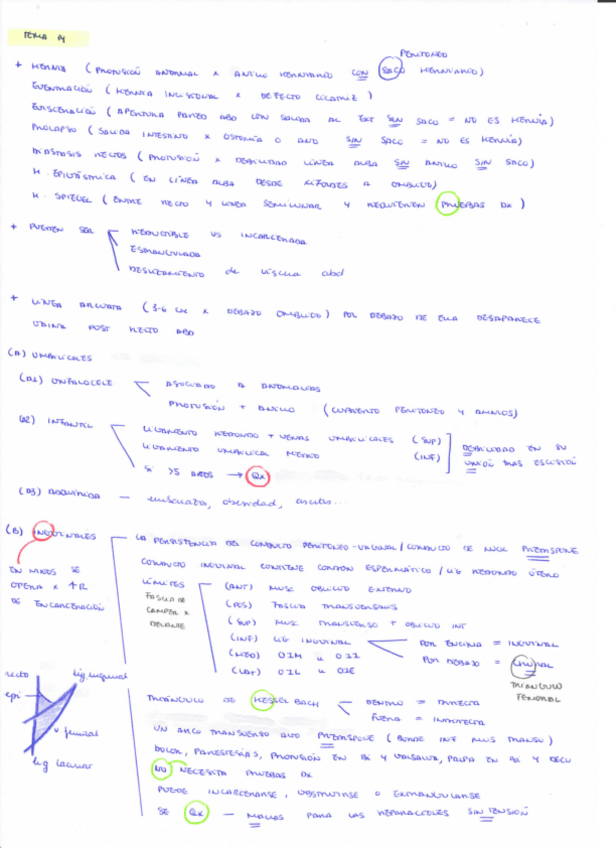 TEMA 14
PERITONEO
+ HERNIA (PROTUSIÓN ANORMAL X ANILLO HERNIARIO CON SACO HERNIARIO)
EVENTRACIÓN (HERNIA INCISIONAL X DEFECTO CICATRIZ)
EVISCERACIÓN (APERTURA PARED ABD CON SALIDA AL EXT SIN SACO = NO ES HERNIA)
PROLAPSO (SALIDA INTESTINO X OSTOMÍA O ANO SIN SACO = NO ES HERNIA)
DIÁSTASIS RECTOS (PROTUSIÓN X DEBILIDAD LÍNEA ALBA SIN ANILLO SIN SACO)
H. EPIGÁSTRICA (EN LÍNEA ALBA DESDE XIFOIDES A OMBLIGO)
H. SPIEGEL (ENTRE RECTO Y LÍNEA SEMILUNAR Y REQUIEREN PRUEBAS DX)
+ PUEDEN SER REDUCTIBLE VS INCARCERADA
ESTRANGULADA
DESLIZAMIENTO de víscera abd
+ LÍNEA ARCUATA (3-6 cm X DEBAJO OMBLIGO) POR DEBAJO DE ELLA DESAPARECE
VAINA POST RECTO ABD
(A) UMBILICALES
(A1) ONFALOCELE ASOCIADO A ANOMALÍAS
PROTUSIÓN + ANILLO (CUBIERTO PERITONEO Y AMNIOS)
(A2) INFANTIL LIGAMENTO REDONDO + VENAS UMBILICALES (SUP)
LIGAMENTO UMBILICAL MEDIO (INF)
DEBILIDAD EN SU
UNIÓN MAS ESCISIÓN
SI >5 AÑOS → QX
(A3) ADQUIRIDA — embarazo, obesidad, ascitis...
(B) INGUINALES LA PERSISTENCIA DEL CONDUCTO PERITONEO-VAGINAL / CONDUCTO DE NUCK PREDISPONE
CONDUCTO INGUINAL CONTIENE CORDÓN ESPERMÁTICO / LIG REDONDO ÚTERO
EN NIÑOS SE
OPERA X ↑R
DE ENCARCERACIÓN
LÍMITES
FASCIA DE
CAMPER X
DELANTE
(ANT) MUSC OBLICUO EXTERNO
(POS) FASCIA TRANSVERSALIS
(SUP) MUSC TRANSVERSO + OBLICUO INT
(INF) LIG INGUINAL
POR ENCIMA = INGUINAL
POR DEBAJO = CRURAL
TRIÁNGULO
FEMORAL
recto
lig inguinal
epi
v femoral
lig lacunar
TRIÁNGULO DE HESSELBACH
DENTRO = DIRECTA
FUERA = INDIRECTA
UN ARCO TRANSVERSO ALTO PREDISPONE (BORDE INF MUS TRANSV)
DOLOR, PARESTESIAS, PROTUSIÓN EN BI Y VALSALVA, PALPA EN BI Y DECU
NO NECESITA PRUEBAS DX
PUEDE INCARCERARSE, OBSTRUIRSE O EXTRANGULARSE
SE QX — MALLAS PARA LAS REPARACIONES SIN TENSIÓN